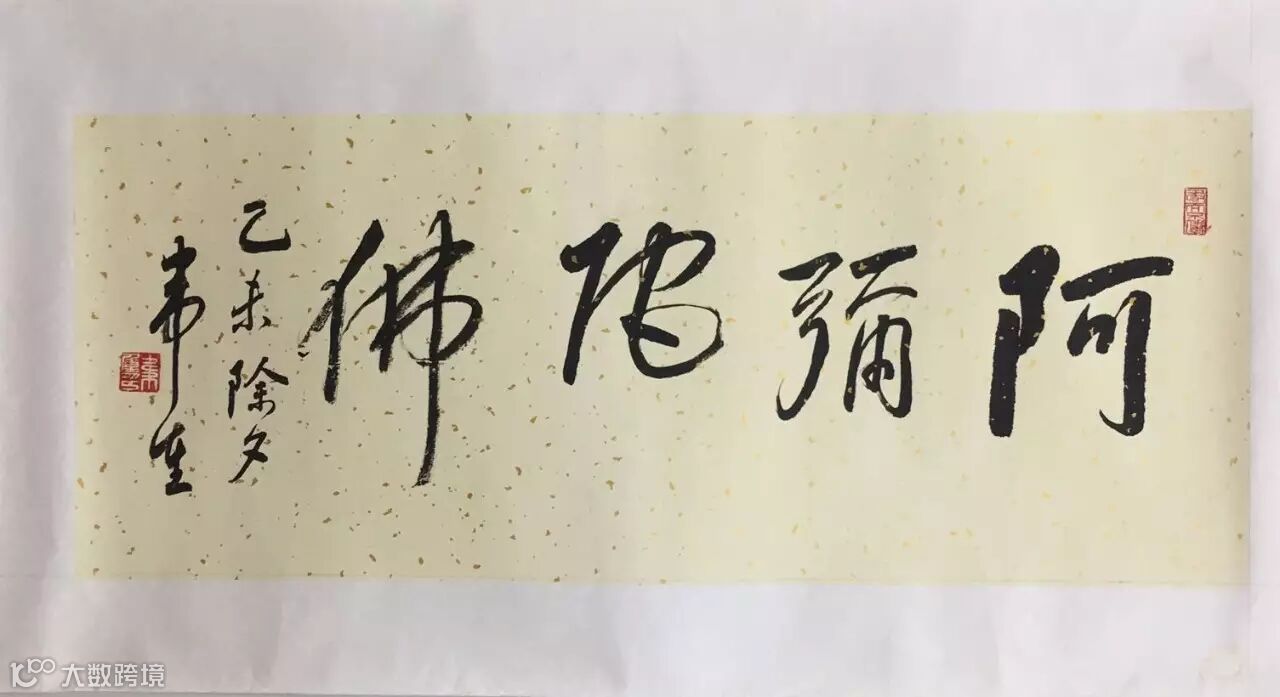 阿彌陀佛
乙未除夕
大数跨境